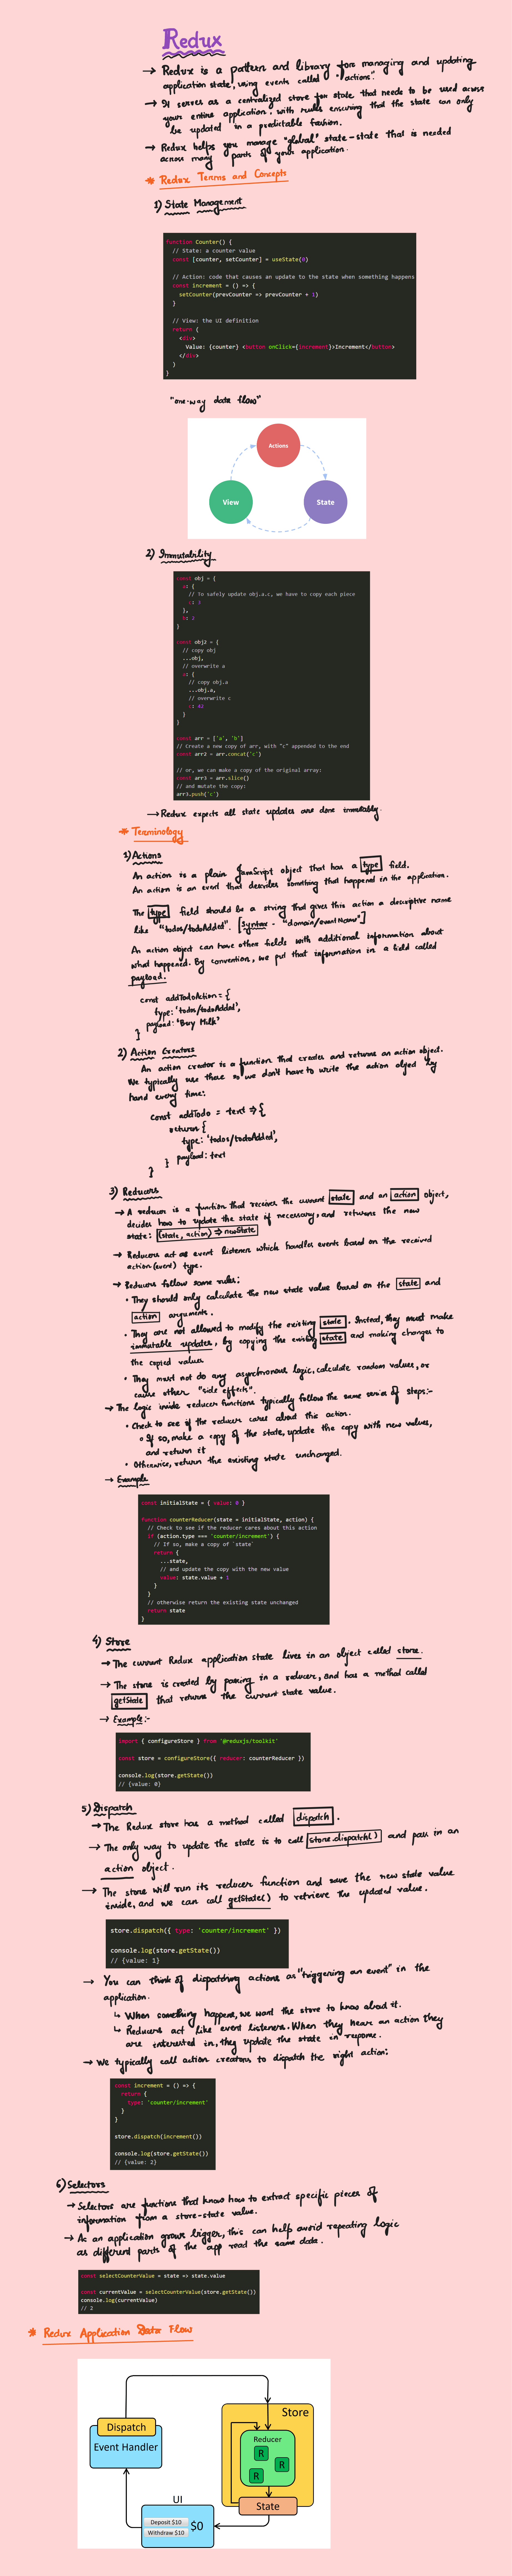 Redux
→ Redux is a pattern and library for managing and updating
application state, using events called "actions".
→ It serves as a centralized store for state that needs to be used across
your entire application, with rules ensuring that the state can only
be updated in a predictable fashion.
→ Redux helps you manage "global" state - state that is needed
across many parts of your application.
* Redux Terms and Concepts
1) State Management
function Counter() {
// State: a counter value
const [counter, setCounter] = useState(0)
// Action: code that causes an update to the state when something happens
const increment = () => {
setCounter(prevCounter => prevCounter + 1)
}
// View: the UI definition
return (
<div>
Value: {counter} <button onClick={increment}>Increment</button>
</div>
)
}
"one-way data flow"
Actions
View
State
2) Immutability
const obj = {
a: {
// To safely update obj.a.c, we have to copy each piece
c: 3
},
b: 2
}
const obj2 = {
// copy obj
...obj,
// overwrite a
a: {
// copy obj.a
...obj.a,
// overwrite c
c: 42
}
}
const arr = ['a', 'b']
// Create a new copy of arr, with "c" appended to the end
const arr2 = arr.concat('c')
// or, we can make a copy of the original array:
const arr3 = arr.slice()
// and mutate the copy:
arr3.push('c')
→ Redux expects all state updates are done immutably.
* Terminology
1) Actions
An action is a plain JavaScript object that has a type field.
An action is an event that describes something that happened in the application.
The type field should be a string that gives this action a descriptive name
like "todos/todoAdded". [Syntax - "domain/eventName"]
An action object can have other fields with additional information about
what happened. By convention, we put that information in a field called
payload.
const addTodoAction = {
type: 'todos/todoAdded',
payload: 'Buy Milk'
}
2) Action Creators
An action creator is a function that creates and returns an action object.
We typically use these so we don't have to write the action object by
hand every time:
const addTodo = text => {
return {
type: 'todos/todoAdded',
payload: text
}
}
3) Reducers
→ A reducer is a function that receives the current state and an action object,
decides how to update the state if necessary, and returns the new
state: (state, action) => newState
→ Reducers act as event listener which handles events based on the received
action (event) type.
→ Reducers follow some rules:
• They should only calculate the new state value based on the state and
action arguments.
• They are not allowed to modify the existing state. Instead, they must make
immutable updates, by copying the existing state and making changes to
the copied values
• They must not do any asynchronous logic, calculate random values, or
cause other "side effects".
→ The logic inside reducer functions typically follow the same series of steps:-
• Check to see if the reducer cares about this action.
o If so, make a copy of the state, update the copy with new values,
and return it
• Otherwise, return the existing state unchanged.
→ Example
const initialState = { value: 0 }
function counterReducer(state = initialState, action) {
// Check to see if the reducer cares about this action
if (action.type === 'counter/increment') {
// If so, make a copy of `state`
return {
...state,
// and update the copy with the new value
value: state.value + 1
}
}
// otherwise return the existing state unchanged
return state
}
4) Store
→ The current Redux application state lives in an object called store.
→ The store is created by passing in a reducer, and has a method called
getState that returns the current state value.
→ Example:-
import { configureStore } from '@reduxjs/toolkit'
const store = configureStore({ reducer: counterReducer })
console.log(store.getState())
// {value: 0}
5) Dispatch
→ The Redux store has a method called dispatch.
→ The only way to update the state is to call store.dispatch() and pass in an
action object.
→ The store will run its reducer function and save the new state value
inside, and we can call getState() to retrieve the updated value.
store.dispatch({ type: 'counter/increment' })
console.log(store.getState())
// {value: 1}
→ You can think of dispatching actions as "triggering an event" in the
application.
↳ When something happens, we want the store to know about it.
↳ Reducers act like event listeners. When they hear an action they
are interested in, they update the state in response.
→ We typically call action creators to dispatch the right action:
const increment = () => {
return {
type: 'counter/increment'
}
}
store.dispatch(increment())
console.log(store.getState())
// {value: 2}
6) Selectors
→ Selectors are functions that know how to extract specific pieces of
information from a store-state value.
→ As an application grows bigger, this can help avoid repeating logic
as different parts of the app read the same data.
const selectCounterValue = state => state.value
const currentValue = selectCounterValue(store.getState())
console.log(currentValue)
// 2
* Redux Application Data Flow
Store
Dispatch
Reducer
Event Handler
R
R
R
State
UI
Deposit $10
Withdraw $10
$0